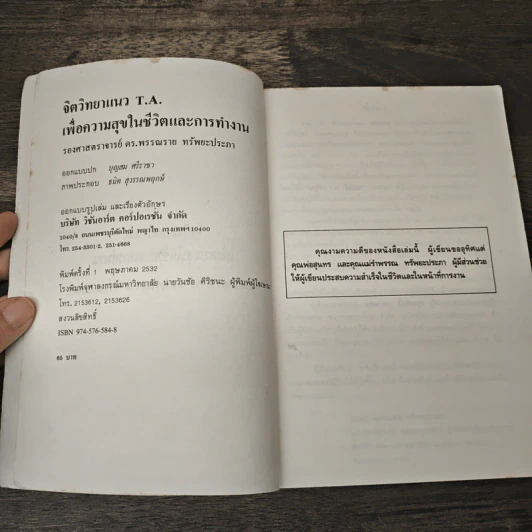 จิตวิทยาแนว T.A.
เพื่อความสุขในชีวิตและการทำงาน
รองศาสตราจารย์ ดร.พรรณราย ทรัพยะประภา
ออกแบบปก บุญสม ศรีราชา
ภาพประกอบ ธนิต สุวรรณพฤกษ์
ออกแบบรูปเล่ม และเรียงตัวอักษร
บริษัท วิชันอาร์ต คอร์ปอเรชั่น จำกัด
1040/8 ถนนเพชรบุรีตัดใหม่ พญาไท กรุงเทพฯ 10400
โทร. 254-3301-2, 251-4668
พิมพ์ครั้งที่ 1 พฤษภาคม 2532
โรงพิมพ์จุฬาลงกรณ์มหาวิทยาลัย นายวันชัย ศิริชนะ ผู้พิมพ์ผู้
โทร. 2153612, 2153626
สงวนลิขสิทธิ์
ISBN 974-576-584-8
65 บาท
คุณงามความดีของหนังสือเล่มนี้ ผู้เขียนขออุทิศแด่
คุณพ่อสุนทร และคุณแม่รำพรรณ ทรัพยะประภา ผู้มีส่วนช่วย
ให้ผู้เขียนประสบความสำเร็จในชีวิตและในหน้าที่การงาน